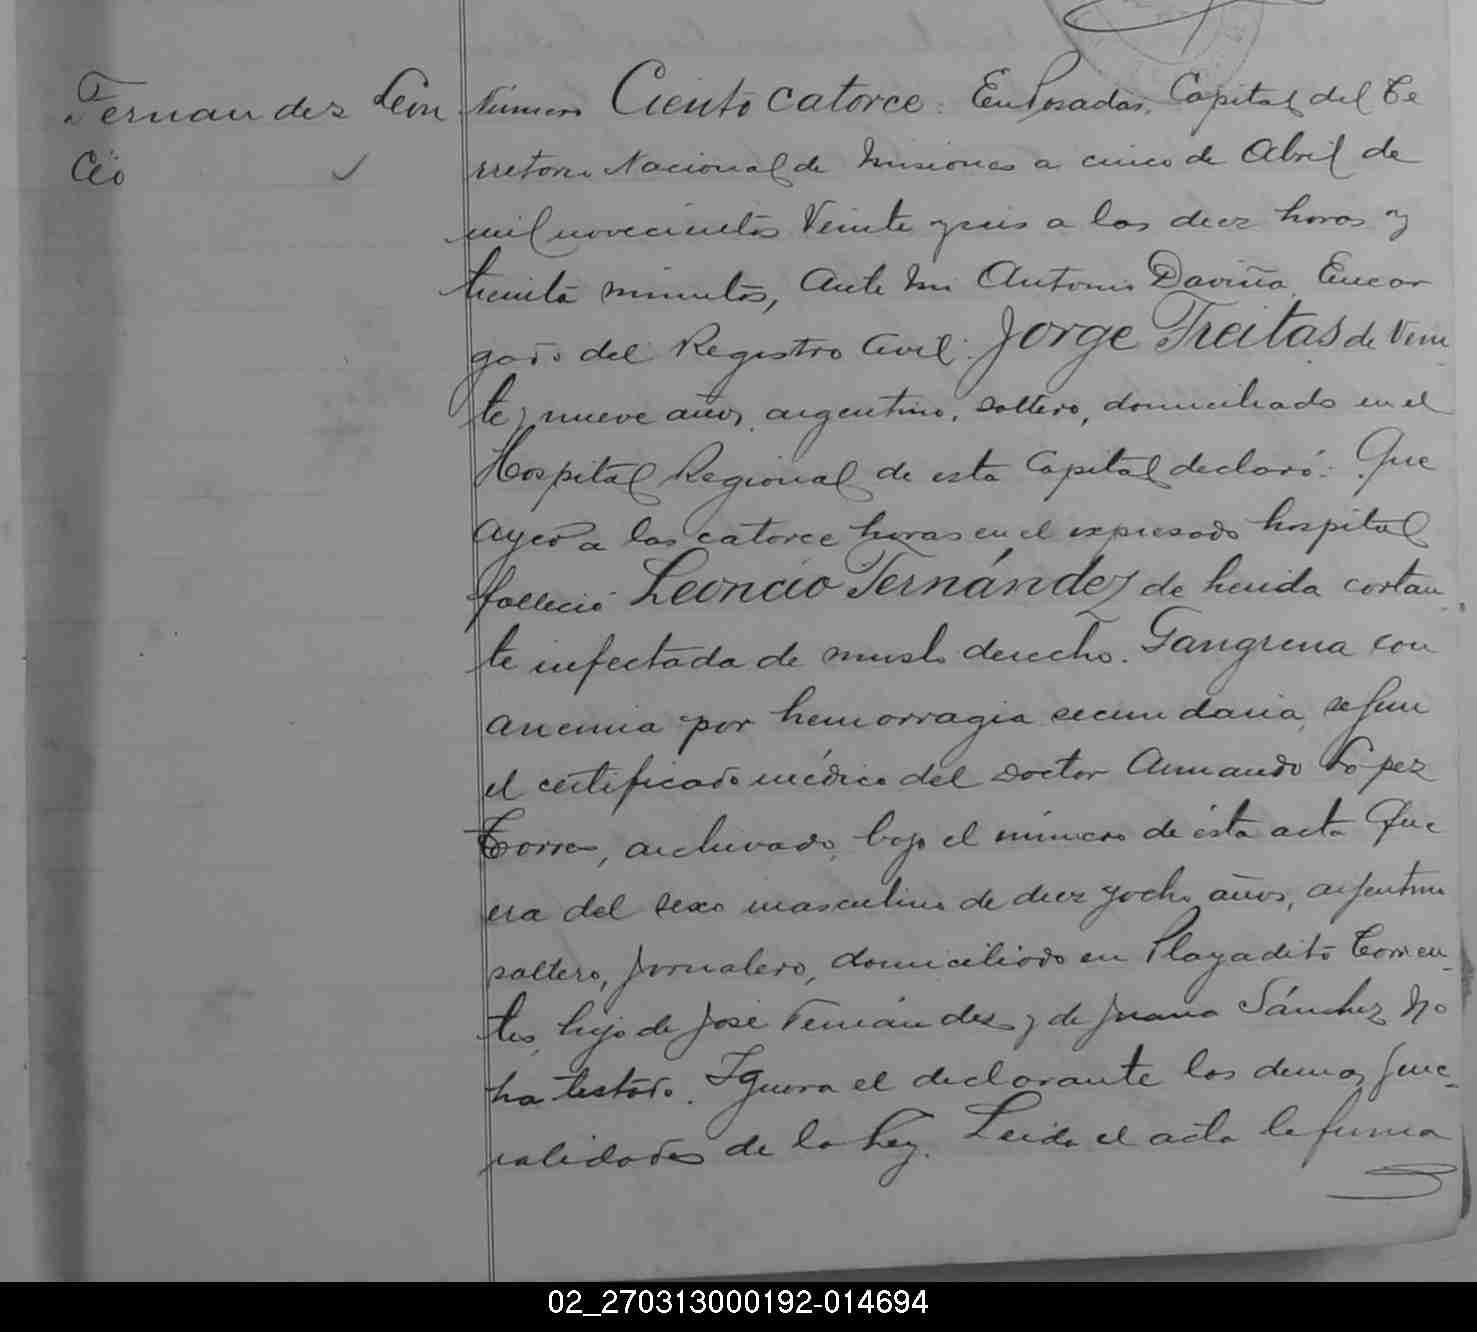 Fernandez Leon
cio
Número Ciento catorce. En Posadas, Capital del Te
rretorio Nacional de Misiones a cinco de Abril de
mil novecientos Veinte y seis a las diez horas y
treinta minutos, Ante mi Antonio Daviña, Encar
gado del Registro Civil: Jorge Freitas de Vein
te y nueve años, argentino, soltero, domiciliado en el
Hospital Regional de esta Capital declaró: Que
ayer a las catorce horas en el expresado hospital
falleció Leoncio Fernández de herida cortan
te infectada de muslo derecho. Gangrena con
anemia por hemorragia secundaria, segun
el certificado médico del doctor Armando López
Torres, archivado bajo el número de ésta acta Que
era del sexo masculino de diez y ocho años, argentino
soltero, jornalero, domiciliado en Playadito Corrien
tes, hijo de José Fernández y de Juana Sánchez No
ha testado. Ignora el declarante las demas gene-
ralidades de la Ley. Leida el acta la firma
02_270313000192-014694